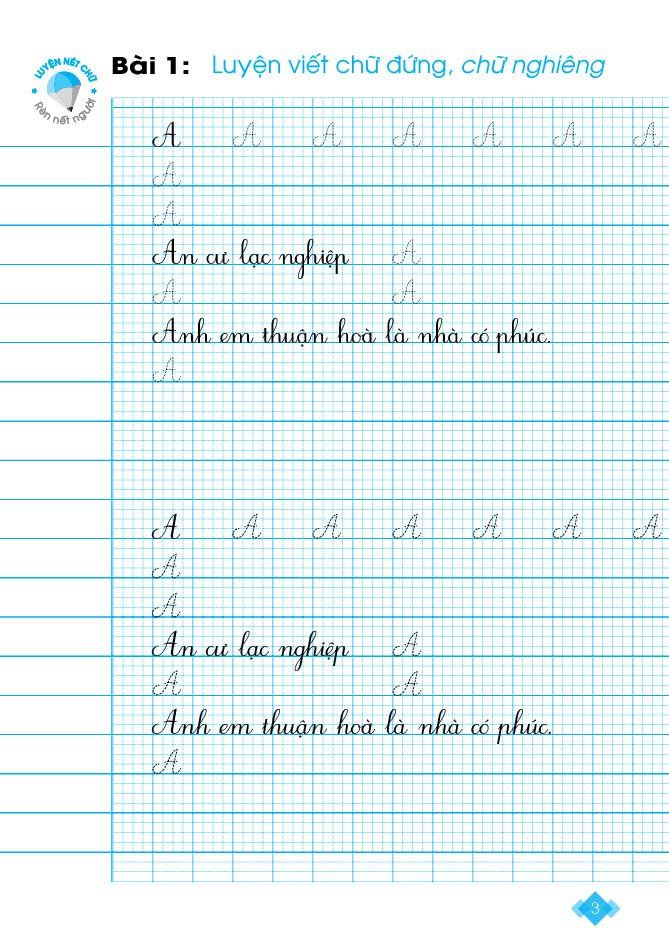 LUYỆN NÉT CHỮ
Rèn nết người
Bài 1: Luyện viết chữ đứng, chữ nghiêng
A A A A A A A
A
A
An cư lạc nghiệp A
A A
Anh em thuận hoà là nhà có phúc.
A
A A A A A A A
A
A
An cư lạc nghiệp A
A A
Anh em thuận hoà là nhà có phúc.
A
3